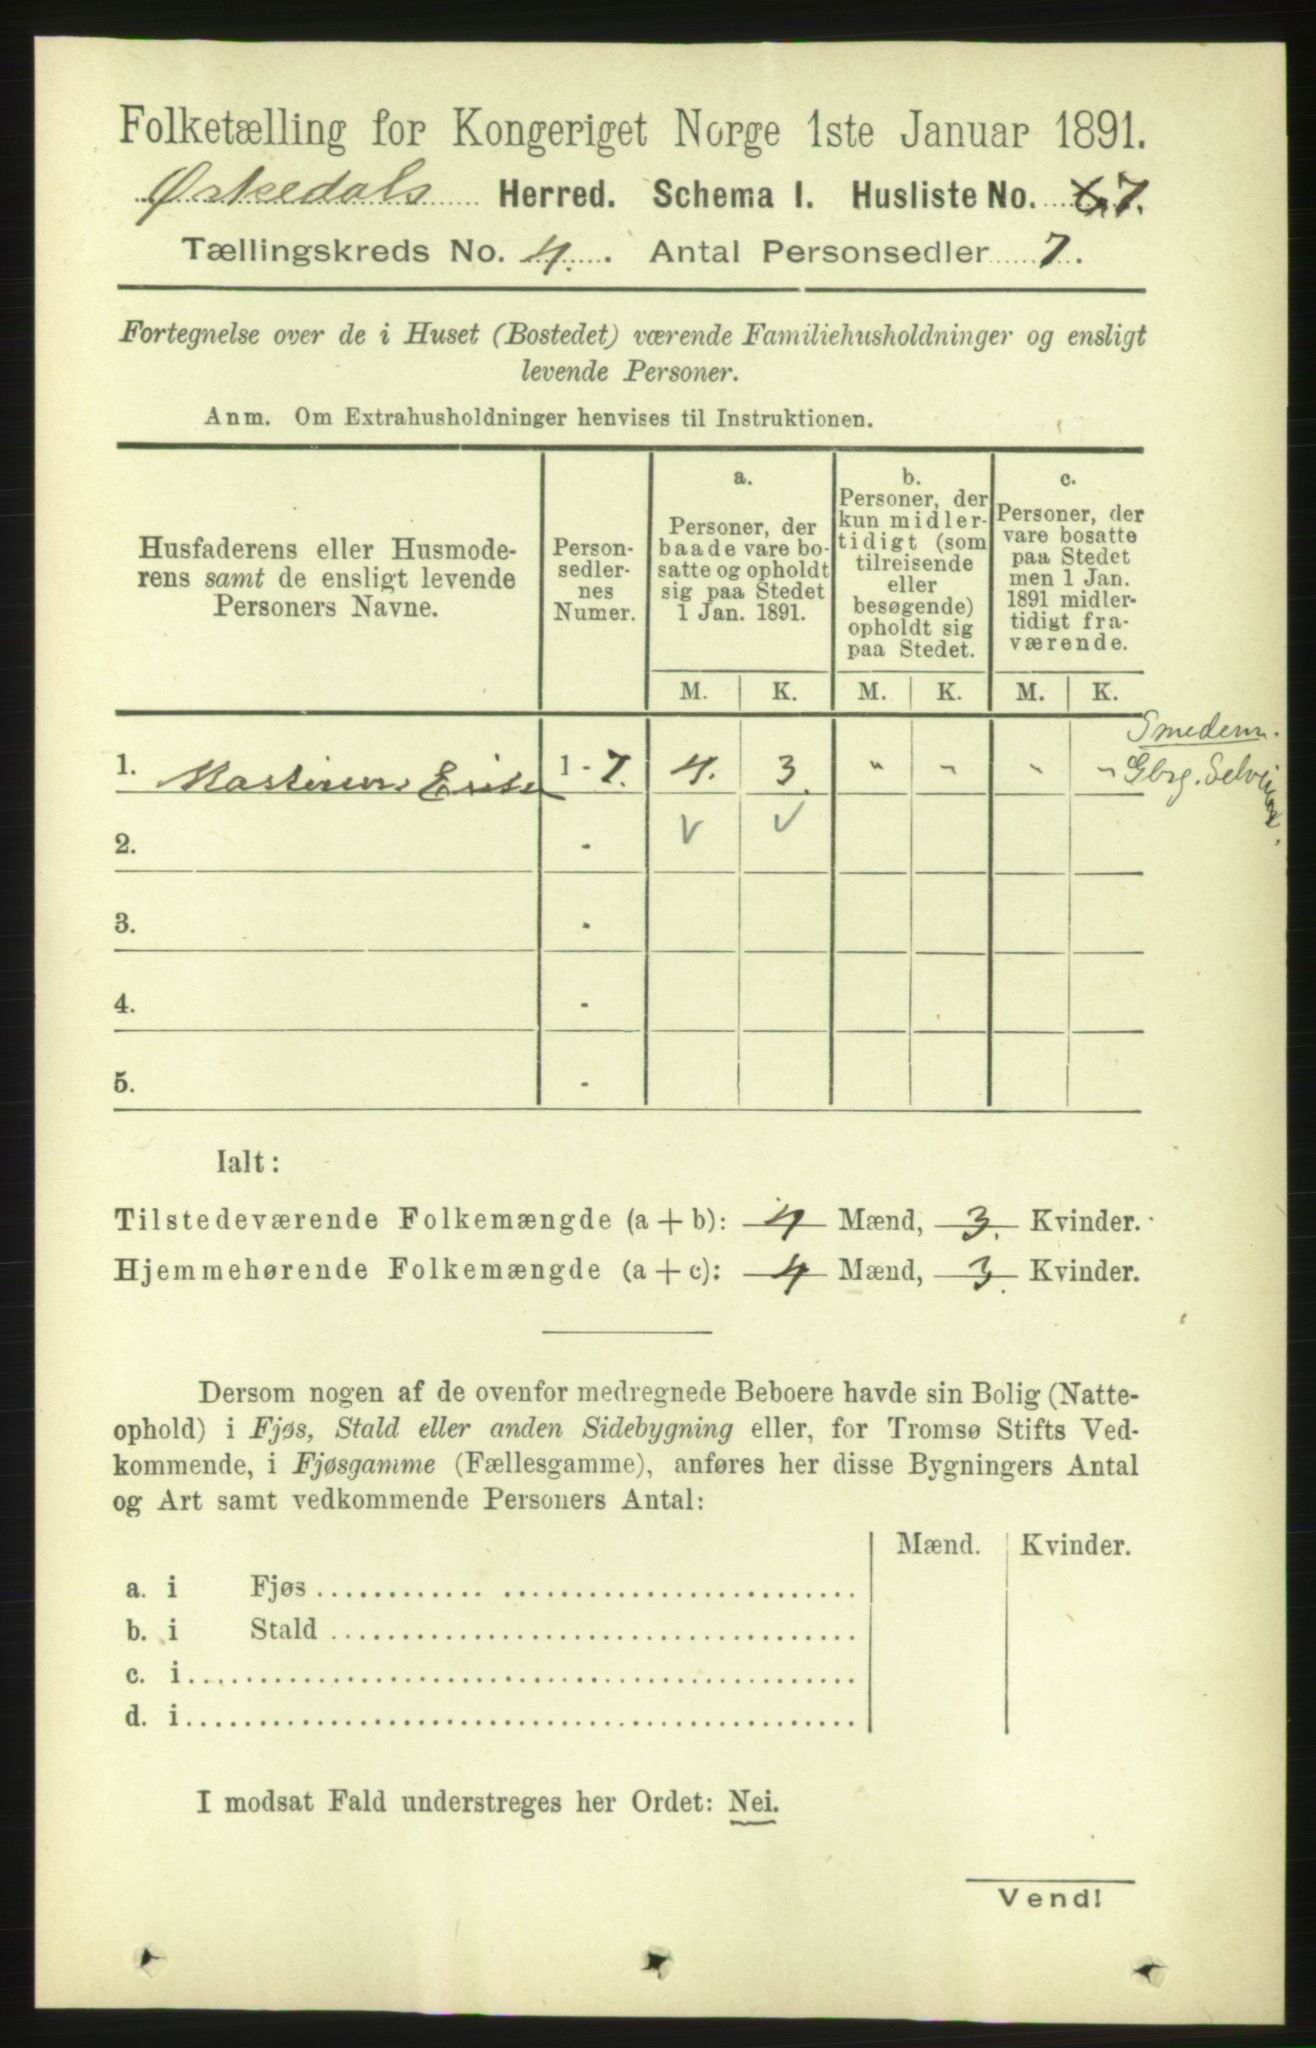 Folketælling for Kongeriget Norge 1ste Januar 1891.
Ørkedals Herred. Schema I. Husliste No. 7.
Tællingskreds No. 4. Antal Personsedler 7.
Fortegnelse over de i Huset (Bostedet) værende Familiehusholdninger og ensligt
levende Personer.
Anm. Om Extrahusholdninger henvises til Instruktionen.
Husfaderens eller Husmode-
rens samt de ensligt levende
Personers Navne.
Person-
sedler-
nes
Numer.
a.
Personer, der
baade vare bo-
satte og opholdt
sig paa Stedet
1 Jan. 1891.
b.
Personer, der
kun midler-
tidigt (som
tilreisende
eller
besøgende)
opholdt sig
paa Stedet.
c.
Personer, der
vare bosatte
paa Stedet
men 1 Jan.
1891 midler-
tidigt fra-
værende.
M. K. M. K. M. K.
Smedem.
1. 1 - 7. 4. 3. " " " " Gbrg.
2. -
3. -
4. -
5. -
Ialt:
Tilstedeværende Folkemængde (a + b): 4 Mænd, 3. Kvinder.
Hjemmehørende Folkemængde (a + c): 4 Mænd, 3. Kvinder.
Dersom nogen af de ovenfor medregnede Beboere havde sin Bolig (Natte-
ophold) i Fjøs, Stald eller anden Sidebygning eller, for Tromsø Stifts Ved-
kommende, i Fjøsgamme (Fællesgamme), anføres her disse Bygningers Antal
og Art samt vedkommende Personers Antal:
Mænd. Kvinder.
a. i Fjøs
b. i Stald
c. i
d. i
I modsat Fald understreges her Ordet: Nei.
Vend!